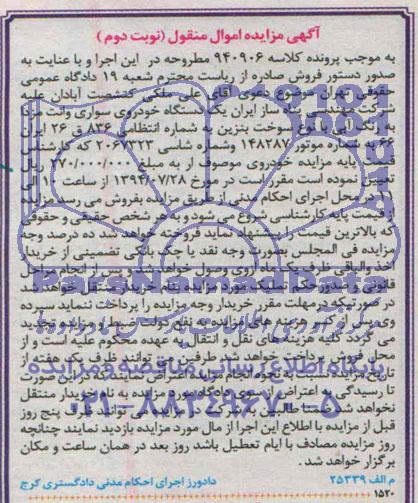 آگهی مزایده اموال منقول (نوبت دوم)
به موجب پرونده کلاسه ۹۴۰۹۰۶ مطروحه در این اجرا و با عنایت به
صدور دستور فروش صادره از ریاست محترم شعبه ۱۹ دادگاه عمومی
حقوقی تهران موضوع دعوی آقای علی ملکی کنتشصت آبادان علیه
شرکت مهندسی پناه ساز ایران یک دستگاه خودروی سواری وانت مزدا
به رنگ آبی با نوع سوخت بنزین به شماره انتظامی ۸۳۶ ق ۲۶ ایران
۶۶ به شماره موتور ۱۴۸۲۸۷ وشماره شاسی ۲۰۶۷۳۲۳ که کارشناس
قیمت پایه مزایده خودروی موصوف را به مبلغ ۲۷۰/۰۰۰/۰۰۰ ریال
تعیین نموده است مقرر است در مورخ ۱۳۹۴/۰۷/۲۸ از ساعت ۱۰ الی
۱۱ در محل اجرای احکام مدنی از طریق مزایده بفروش می رسد مزایده
از قیمت پایه کارشناسی شروع می شود و به هر شخص حقیقی و حقوقی
که بالاترین قیمت را پیشنهاد نماید فروخته خواهد شد ده درصد وجه
مزایده فی المجلس بصورت وجه نقد یا چک بانکی تضمینی از خریدار
اخذ والباقی ظرف یک ماه از وی وصول خواهد شد و پس از انجام مراحل
قانونی و صدور حکم تملیک مورد مزایده بنام خریدار منتقل خواهد شد
در صورتیکه در مهلت مقرر خریدار وجه مزایده را پرداخت ننماید سپرده
وی پس از کسر هزینه های مزایده به نفع دولت ضبط و مزایده تجدید
می گردد کلیه هزینه های نقل و انتقال به عهده محکوم علیه است و از
محل فروش پرداخت خواهد شد طرفین می توانند ظرف یک هفته از
تاریخ مزایده به نحوه انجام مزایده اعتراض نمایند که در این صورت
تا رسیدگی به اعتراض از سوی دادگاه مورد مزایده به نام خریدار منتقل
نخواهد شد ضمنا طالبین به شرکت در مزایده می توانند ظرف پنج روز
قبل از مزایده با اطلاع این اجرا از مال مورد مزایده بازدید نمایند چنانچه
روز مزایده مصادف با ایام تعطیل باشد روز بعد در همان ساعت و مکان
برگزار خواهد شد.
م الف ۲۵۳۳۹ دادورز اجرای احکام مدنی دادگستری کرج
۱۵۲۰
پایگاه اطلاع رسانی مناقصه و مزایده
۰۲۱-۸۸۳۴۹۶۷۰-۵